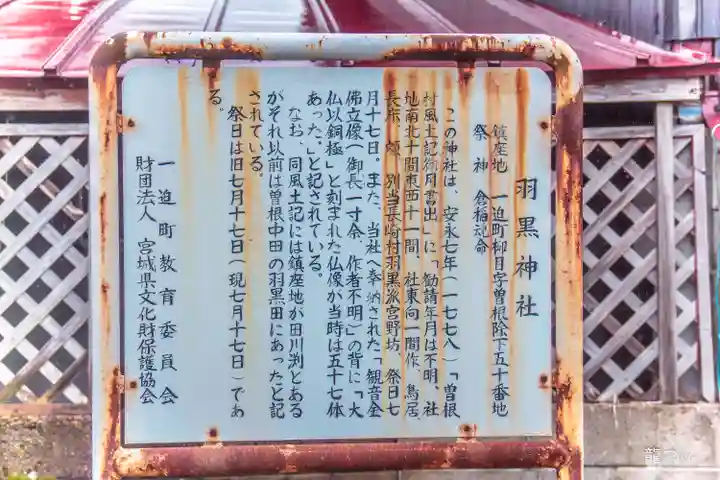 羽黒神社
鎮座地 一迫町柳目字曽根除下五十番地
祭神 倉稲記命
この神社は、安永七年(一七七八)「曽根
村風土記御用書出」に「勧請年月は不明、社
地南北十間東西十一間、社東向一間作、鳥居、
長床、額、別当長崎村羽黒派宮野坊 祭日七
月十七日。また、当社へ奉納された「観音金
佛立像(御長一寸余、作者不明)の背に「大
仏以銅極」と刻まれた仏像が当時は五十七体
あった」と記されている。
なお、同風土記には鎮座地が田川渕とある
がそれ以前は曽根中田の羽黒田にあったと記
されている。
祭日は旧七月十七日(現七月十七日)であ
る。
一迫町教育委員会
財団法人 宮城県文化財保護協会
龍